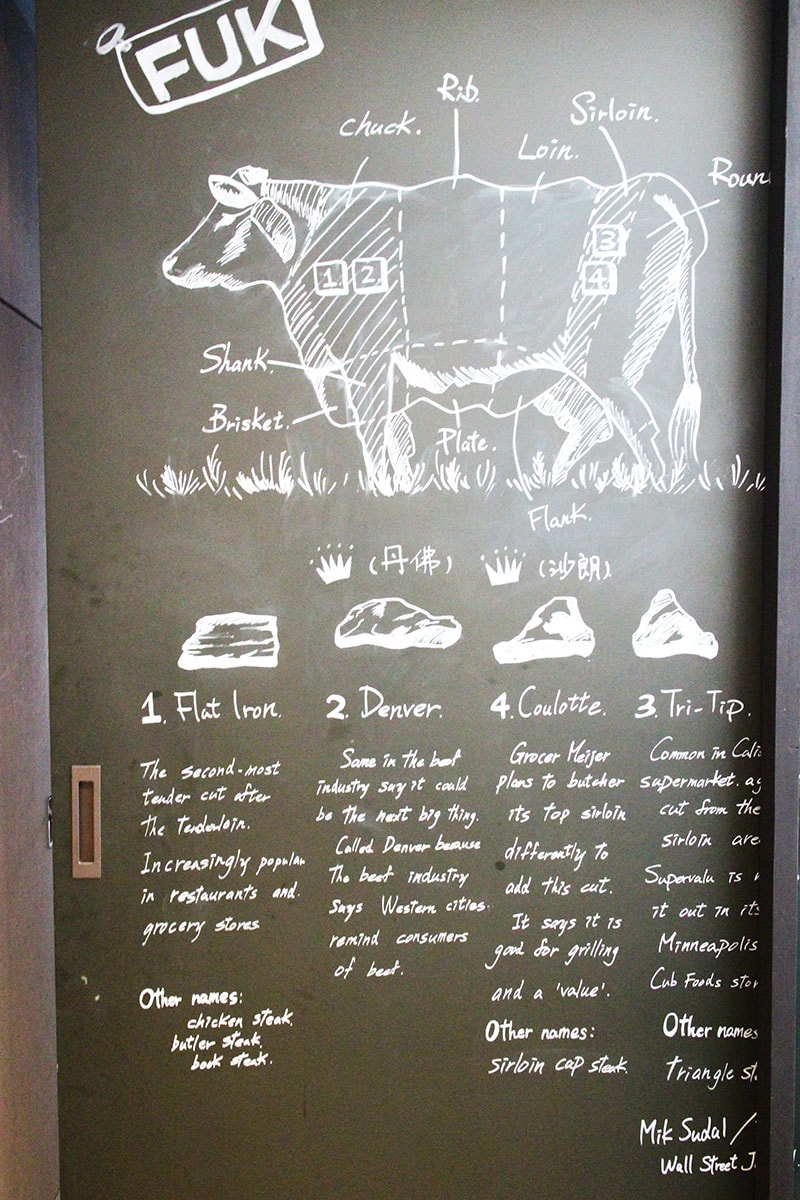 FUK
Rib.
Chuck.
Sirloin.
Loin.
Roun
1. 2.
3
4
Shank.
Brisket.
Plate.
Flank.
(丹佛)
(沙朗)
1. Flat Iron.
The second-most
tender cut after
the tenderloin.
Increasingly popular
in restaurants and
grocery stores
Other names:
chicken steak,
butler steak,
book steak.
2. Denver.
Some in the beef
industry say it could
be the next big thing.
Called Denver because
the beef industry
says Western cities
remind consumers
of beef.
4. Coulotte.
Grocer Meijer
plans to butcher
its top sirloin
differently to
add this cut.
It says it is
good for grilling
and a 'value'.
Other names:
sirloin cap steak.
3. Tri-Tip.
Common in Cali
supermarket. ag
cut from the
sirloin are
Supervalu is
it out in its
Minneapolis
Cub Foods stor
Other names
Triangle st
Mik Sudal /
Wall Street J.